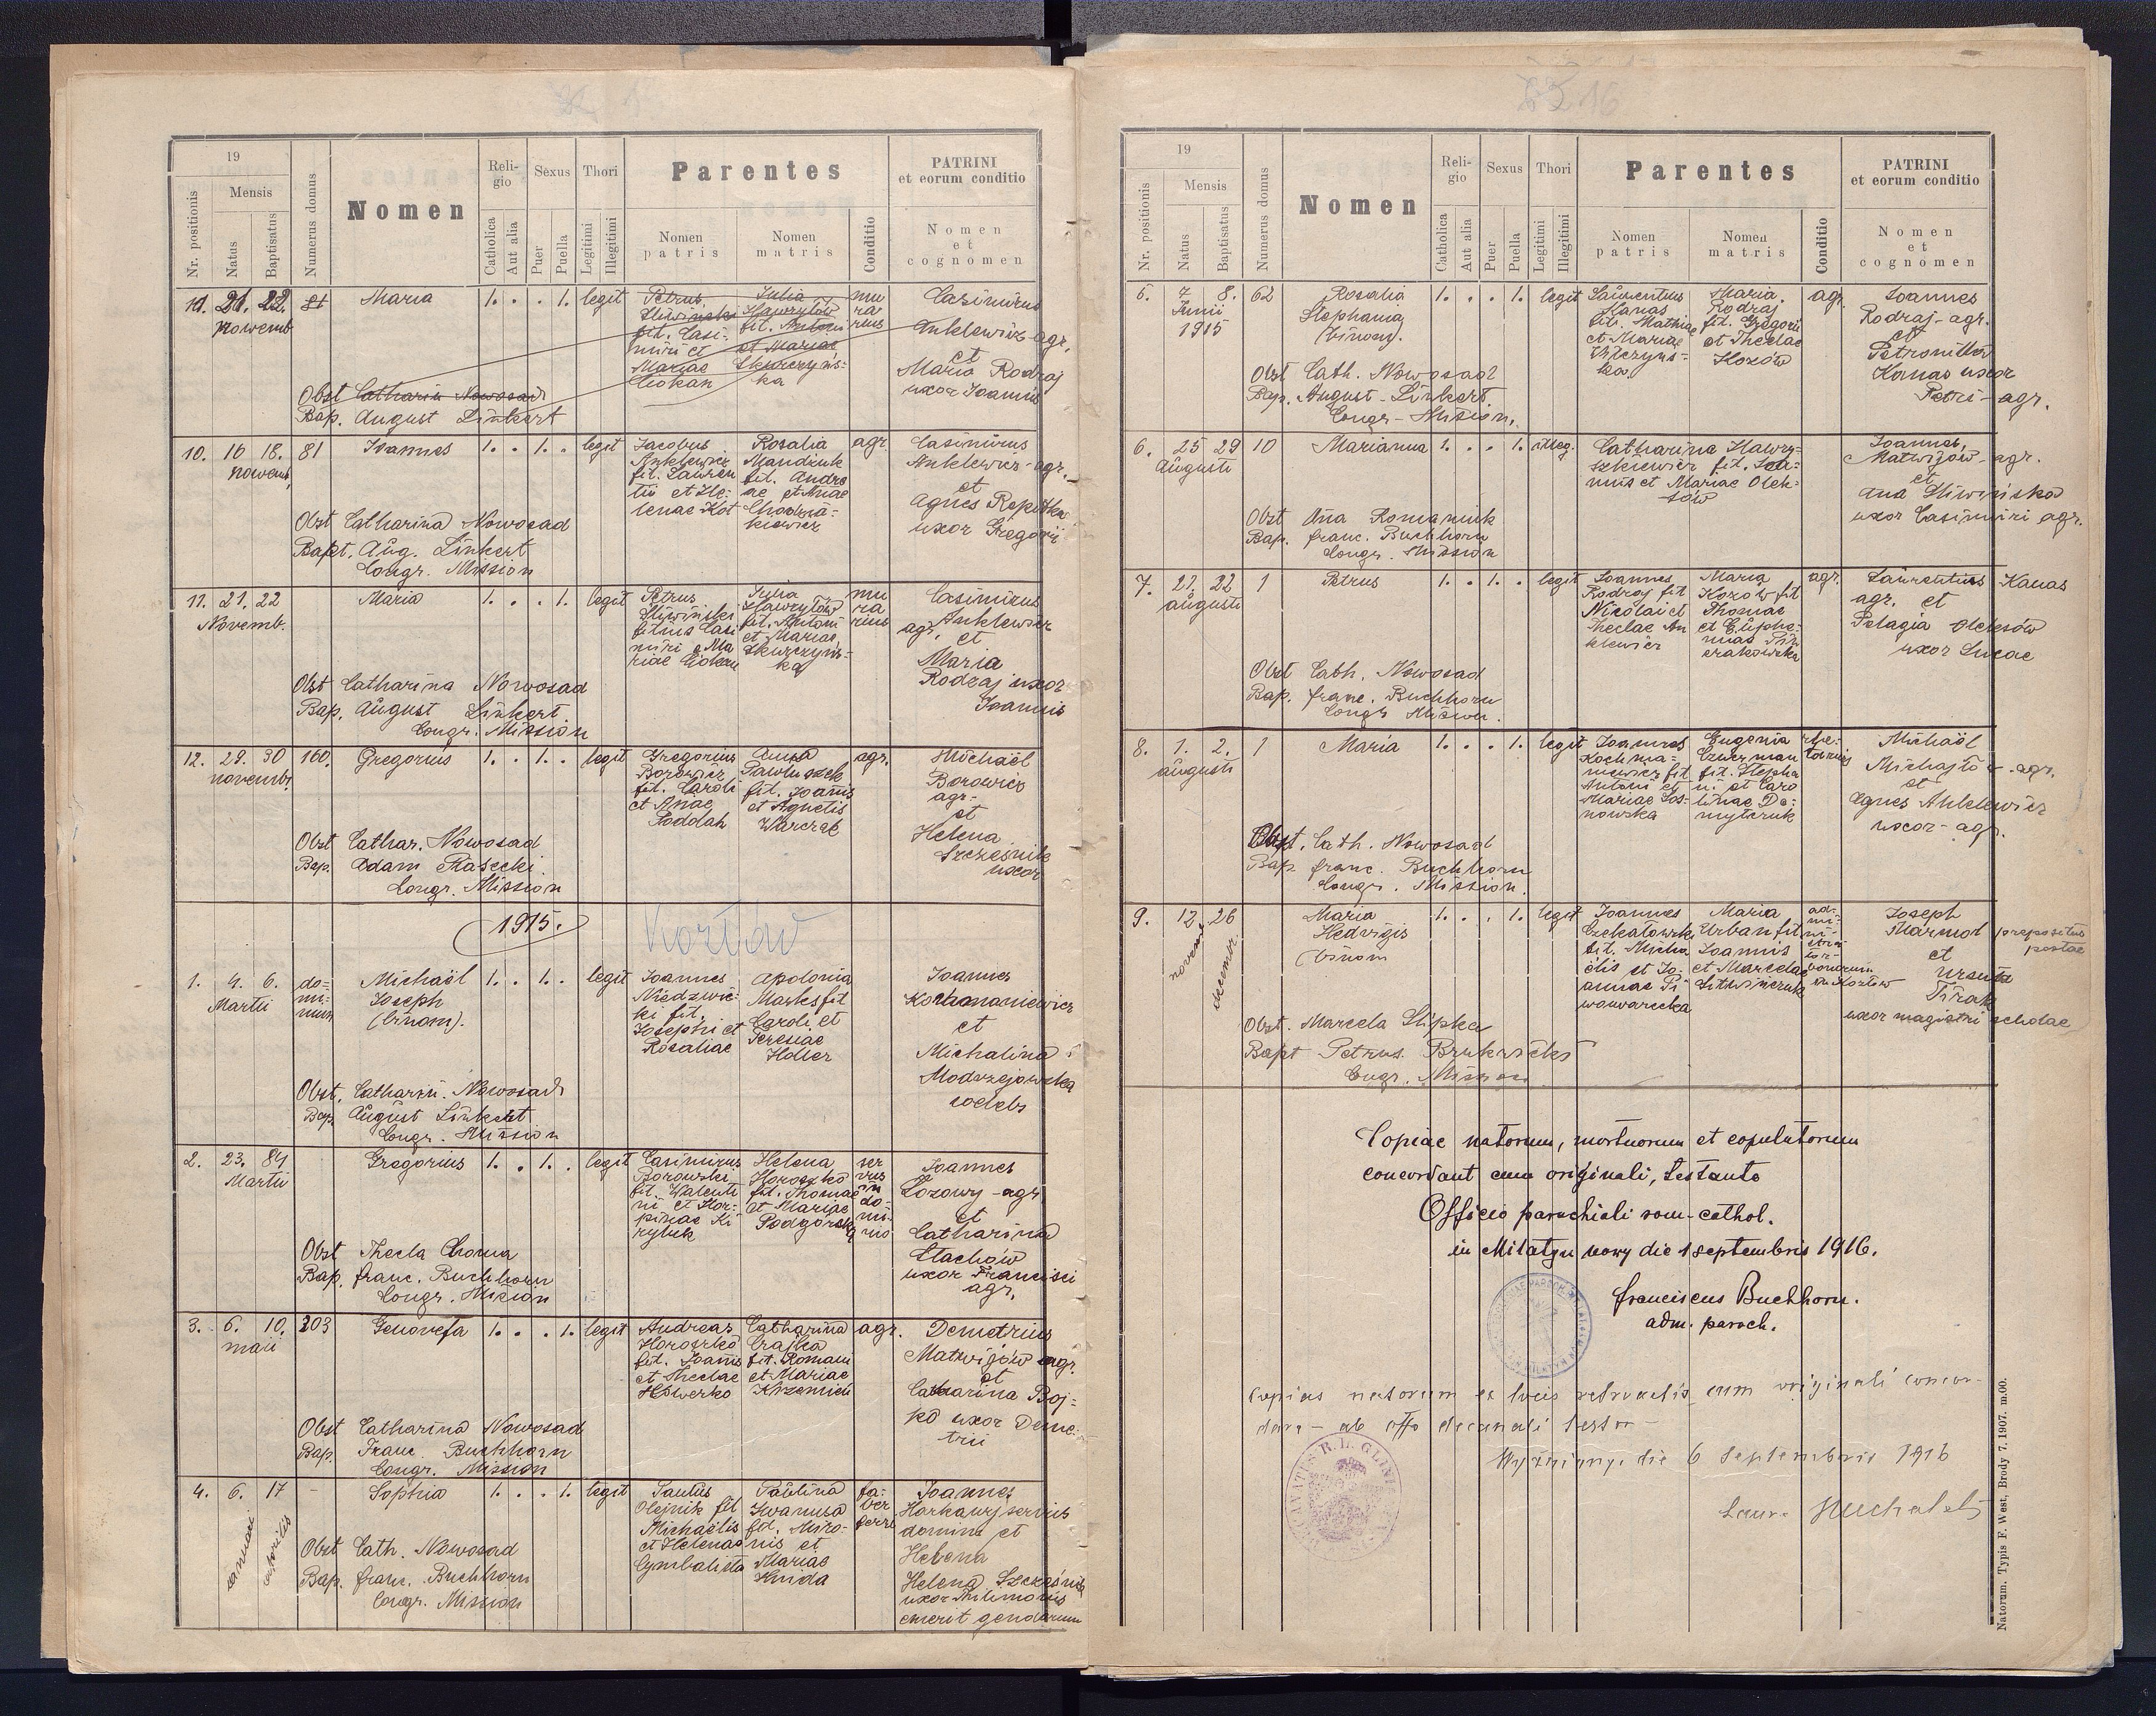 19
Nr. positionis
Mensis
Natus
Baptisatus
Numerus domus
Nomen
Reli-
gio
Catholica
Aut alia
Sexus
Puer
Puella
Thori
Legitimi
Illegitimi
Parentes
Nomen
patris
Nomen
matris
Conditio
PATRINI
et eorum conditio
Nomen
et
cognomen
11. 21. 22. 81 Maria 1. . . 1. legit Petrus Julia mu Casimirus
Novemb Sliwinski Hawrylów ra Anklewicz agr.
fil. Casi- fil. Antoni rius et
miri et et Mariae Maria Rodzaj
Mariae Skurczyńs- uxor Joannis
Ciokan ka
Obst Catharin Nowosad
Bap. August Linkert
10. 16 18. 81 Joannes 1. . 1. . legit Jacobus Rosalia agr. Casimirus
Novemb. Anklewicz Mandziuk Anklewicz - agr.
fil. Lauren fil. Andre et
tii et He- ae et Anae Agnes Repitka
lenae Kot uxor Gregorii
Obst Catharina Nowosad
Bapt. Aug. Linkert
Congr. Mission
11. 21. 22 Maria 1. . . 1. legit Petrus Julia mu Casimirus
Novemb. Sliwiński Hawrylów ra Anklewicz
filius Casi fil. Antoni rius agr. et
miri e Ma et Mariae Maria
riae Ciokan Skurczyńs- Rodzaj uxor
ka Joannis
Obst Catharina Nowosad
Bap. August Linkert
Congr. Mission
12. 29. 30 160. Gregorius 1. . 1. . legit Gregorius Anna agr. Michaël
novembr. Borowicz Pawluszek Borowicz
fil. Caroli fil. Joanis agr.
et Anae et Agnetis et
Poddah Warczak Helena
Szcześnik
uxor
Obst Cathar. Nowosad
Bap. Adam Piasecki.
Congr. Mission
1915.
Kozłów
1. 4. 6. do- Michaël 1. . 1. . legit Joannes Apolonia Joannes
Martii mi- Joseph Niedzwic- Marks fil Kochmaniewicz
nium (binom). ki fil. Caroli et et
Josephi et Teresiae Michalina
Rosaliae Holler Modrzejowska
coelebs
Obst. Catharin. Nowosad
Bap. August Linkert
Congr. Mission
2. 23. 84 Gregorius 1. . 1. . legit Casimirus Helena ser Joannes
Martii Borowski Horoszko vus Lozowy - agr
fil. Walenti fil. Thomae in et
ni et Hor- et Mariae do- Catharina
pinae Ki Podgórska mi- Stachów
ryluk nio uxor Francisci
agr.
Obst Thecla Choma
Bap. franc. Buchhorn
Congr. Mission
3. 6. 10. 203 Genovefa 1. . . 1. legit Andreas Catharina agr. Demetrius
maii Horoszko Crajka Matwijów agr.
fil. Joanis fil. Romani et
et Theclae et Mariae Catharina Boj-
Howerko Krzemień ko uxor Deme-
trii
Obst Catharina Nowosad
Bap. Franc. Buchhorn
Congr. Mission
4. 6. 17 - Sophia 1. . . 1. legit Paulus Paulina fa- Joannes
Olejnik fil Iwanusa ber Harkawy servus
Michaëlis fil. Miro- ferri domini et
et Helenae nis et Helena
Cymbalista Mariae Helena Szcześnik
Hnida uxor Philimonis
emerit gendarum
Obst Cath. Nowosad
Bap. franc. Buchhorn
Congr. Mission
19
Nr. positionis
Mensis
Natus
Baptisatus
Numerus domus
Nomen
Reli-
gio
Catholica
Aut alia
Sexus
Puer
Puella
Thori
Legitimi
Illegitimi
Parentes
Nomen
patris
Nomen
matris
Conditio
PATRINI
et eorum conditio
Nomen
et
cognomen
5. 7 8. 62 Rosalia 1. . . 1. legit Laurentius Maria agr. Joannes
Junii Stephania Kanas Rodzaj Rodzaj - agr.
1915 (binom). fil. Mathiae fil. Gregorii et
et Mariae et Theclae Petronilla
Wilczyńs- Kozów Kanas uxor
ka Petri - agr.
Obst Cath. Nowosad
Bap. August - Linkert
Congr - Mission.
6. 25 29 10 Marianna 1. . . 1. illeg. Catharina Hawry- Joannes
Augusti szkiewicz fil. Joa- Matwijów - agr.
nnis et Mariae Olek- et
sów Ana Sliwińska
uxor Casimiri agr.
Obst Ana Romaniuk
Bap. franc. Buchhorn
Congr. Mission
7. 22. 22 1 Petrus 1. . 1. . legit Joannes Maria agr. Laurentius Kanas
augusti Rodzaj fil Kozów fil agr. et
Nicolai et Thomae Pelagia Oleksów
Theclae An et Euphe- uxor Lucae
klewicz miae Pie
czakowska
Obst Cath. Nowosad
Bap. franc. Buchhorn
Congr Mission.
8. 1. 2. 1 Maria 1. . . 1. legit Joannes Eugenia Michaël
augusti Kochma- Czwerman Michajłów - agr.
niewicz fil fil. Stepha et
Antoni et ni et Caro Agnes Anklewicz
Mariae Sos- linae De- uxor - agr.
nowska mytczuk
Obst. Cath. Nowosad
Bap franc. Buchhorn
Congr. Mission.
9. 12. 26 Maria 1. . . 1. legit Joannes Maria ad- Joseph
novemb decembr. Hedvigis Czekatowski Urban fil mi- Marmol prepositus
binom fil. Micha Joannis ni- postae
ëlis et Jo- et Marcelae stra- et
annae Pi Litwińczuk tor Ursula
wowarczka bonorum Pirak
in Kozlów uxor magistri scholae
Obst. Marcela Slipka
Bapt Petrus
Congr. Mission
Copiae natorum, mortuorum et copulatorum
concordant cum originali, testante
Officio parochiali rom-cathol.
in Milatyn nowy die 1 septembris 1916.
franciscus Buchhorn.
adm. paroch.
Copias natorum ex hocis cum originali concor-
dare - ab offo decanali testor
die 6 Septembris 1916
Natorum. Typis F. West, Brody 7. 1907. m.00.